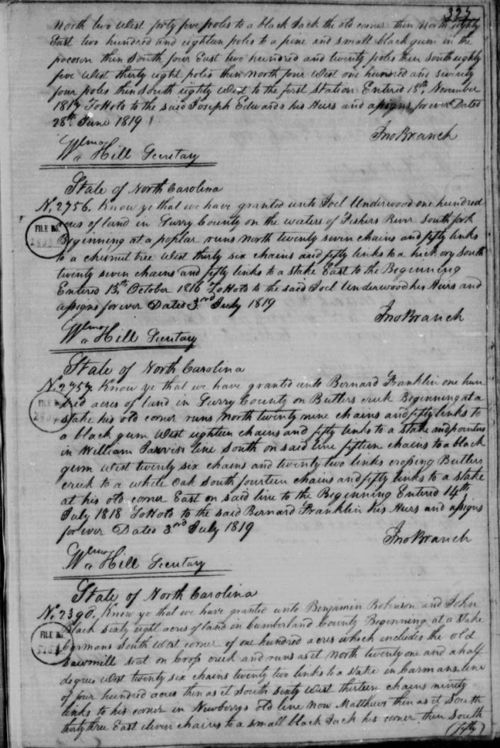 327
North two West forty five poles to a black Jack the old corner then North eighty
East two hundred and eighteen poles to a pine and small black gum in the
pocoson then South four East two hundred and twenty poles then South eighty
five West thirty eight poles then North four West one hundred and seventy
four poles then South eighty West to the first Station Entered 18th November
1817 To Hold to the said Joseph Edwards his Heirs and assigns forever Dated
28th June 1819
Jno Branch
Wm Hill Secretary
State of North Carolina
No. 2756. Know ye that we have granted unto Joel Underwood one hundred
acres of land in Surry County on the waters of Fishers River South fork
Beginning at a poplar runs North twenty seven chains and fifty links
to a chesnut tree West thirty six chains and fifty links to a hickory South
twenty seven chains and fifty links to a stake East to the Beginning
Entered 13th October 1816 To Hold to the said Joel Underwood his Heirs and
assigns forever Dated 3rd July 1819
Jno Branch
FILE No.
Wm Hill Secretary
State of North Carolina
No. 2757. Know ye that we have granted unto Bernard Franklin one hun
dred acres of land in Surry County on Butlers creek Beginning at a
stake his old corner runs North twenty nine chains and fifty links to
a black gum West eighteen chains and fifty links to a stake and pointers
in William line South on said line fifteen chains to a black
gum West twenty six chains and twenty two links crossing Butlers
creek to a white Oak South fourteen chains and fifty links to a stake
at his old corner East on said line to the Beginning Entered 14th
July 1818 To Hold to the said Bernard Franklin his Heirs and assigns
forever Dated 3rd July 1819
Jno Branch
FILE No.
Wm Hill Secretary
State of North Carolina
No. 2390. Know ye that we have granted unto Benjamin Robinson and John
Black sixty eight acres of land in Cumberland County Beginning at a stake
Carmans South West corner of one hundred acres which includes the old
sawmill seat on Coop creek and runs as it North twenty one and a half
degrees West twenty six chains twenty two links to a stake in Carmans line
of four hundred acres then as it South sixty West thirteen chains ninety
links to his corner in Newberrys old line now Matthews then as it South
thirty three East eleven chains to a small black Jack his corner then South
(fifty)
FILE No.